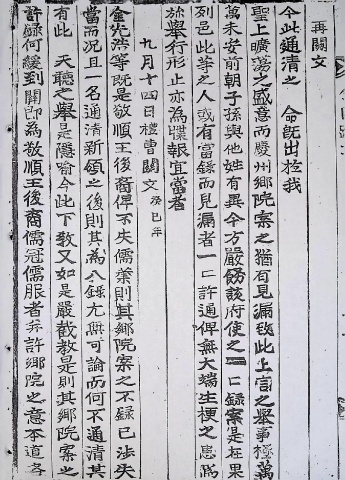 再關文
今此通清之 命旣出於我
聖上曠蕩之盛意而慶州鄕院案之猶有見漏致此上言之擧事極萬
萬未安前朝子孫與他姓有異今方嚴飭該府使之一一錄案是在果
列邑此等之人或有當錄而見漏者一一許通俾無大端生梗之患爲
㫆擧行形止亦爲牒報宜當者
九月十四日禮曹關文 癸巳年
金光浩等旣是敬順王後裔俾不失儒業則其鄕院案之不錄已涉失
當而況且一名通清新頒之後則其爲入錄尤無可論而何不通清其
有此 天聽之擧是隱喩今此下敎又如是嚴截敎是則其鄕院案之
許錄何緩到關卽爲敬順王後裔儒冠儒服者幷許鄕院之意本道各